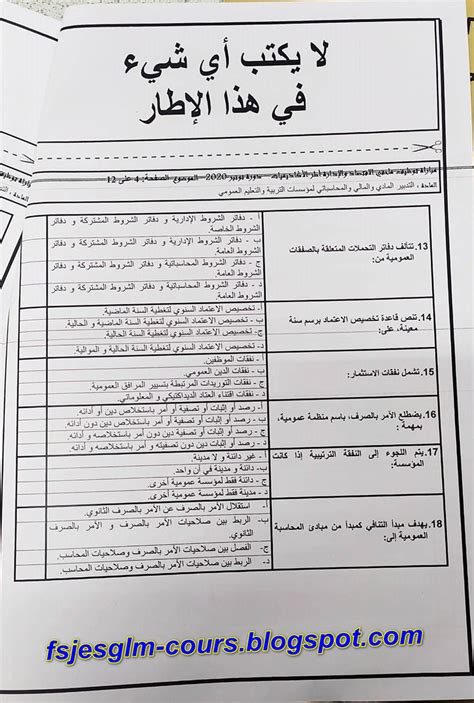 لا يكتب أي شيء
في هذا الإطار
مباراة توظيف ملحقي الاقتصاد والإدارة أطر الأكاديميات - دورة نونبر 2020 - الموضوع الصفحة: 4 على 12
المادة : التدبير المادي والمالي والمحاسباتي لمؤسسات التربية والتعليم العمومي
13. تتألف دفاتر التحملات المتعلقة بالصفقات
العمومية من:
أ - دفاتر الشروط الإدارية و دفاتر الشروط المشتركة و دفاتر
الشروط الخاصة.
ب - دفاتر الشروط الإدارية و دفاتر الشروط المشتركة و دفاتر
الشروط العامة.
ج - دفاتر الشروط المحاسباتية و دفاتر الشروط المشتركة و دفاتر
الشروط العامة.
د - دفاتر الشروط المحاسباتية و دفاتر الشروط المشتركة و دفاتر
الشروط العامة.
14. تنص قاعدة تخصيص الاعتماد برسم سنة
معينة، على:
أ - تخصيص الاعتماد السنوي لتغطية السنة الماضية.
ب - تخصيص الاعتماد السنوي لتغطية السنة الماضية و الحالية.
ج - تخصيص الاعتماد السنوي لتغطية السنة الحالية.
د - تخصيص الاعتماد السنوي لتغطية السنة الحالية و الموالية.
15. تشمل نفقات الاستثمار:
أ - نفقات الموظفين.
ب - نفقات الدين العمومي.
ج - نفقات التوريدات المرتبطة بتسيير المرافق العمومية.
د - نفقات اقتناء العتاد الديداكتيكي و المعلوماتي.
16. يضطلع الآمر بالصرف، باسم منظمة عمومية،
بمهمة :
أ - رصد أو إثبات أو تصفية أو أمر باستخلاص دين أو أدائه.
ب - رصد أو إثبات أو تصفية دين دون أمر باستخلاصه أو أدائه.
ج - رصد أو إثبات أو تصفية دين دون أمر باستخلاصه و أدائه.
د - رصد أو إثبات دين دون تصفيته و أمر باستخلاصه أو أدائه.
17. يتم اللجوء إلى النفقة الترتيبية إذا كانت
المؤسسة:
أ - غير دائنة و لا مدينة.
ب - دائنة و مدينة في آن واحد.
ج - دائنة فقط لمؤسسة عمومية أخرى.
د - مدينة فقط لمؤسسة عمومية أخرى.
18. يهدف مبدأ التنافي كمبدأ من مبادئ المحاسبة
العمومية إلى:
أ - استقلال الآمر بالصرف عن الآمر بالصرف الثانوي.
ب - الربط بين صلاحيات الآمر بالصرف و الآمر بالصرف
الثانوي.
ج - الفصل بين صلاحيات الآمر بالصرف وصلاحيات المحاسب.
د - الربط بين صلاحيات الآمر بالصرف وصلاحيات المحاسب.
fsjesglm-cours.blogspot.com